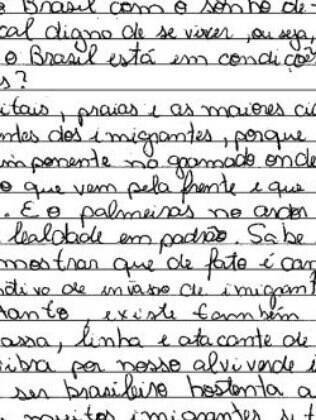 o Brasil com o sonho de
cal digno de se viver, ou seja,
o Brasil está em condiçõe
s?
itais, praias e as maiores cid
ntes dos imigrantes, porque
imponente no gramado onde
o que vem pela frente e que
. E o palmeiras no ardor
lealdade em padrão. Sabe
mostrar que de fato é cam
otivo de invasão de imigrant
tanto, existe também
assa, linha e atacante de
vibra por nosso alviverde i
ser brasileiro hostenta a
muitos imigrantes